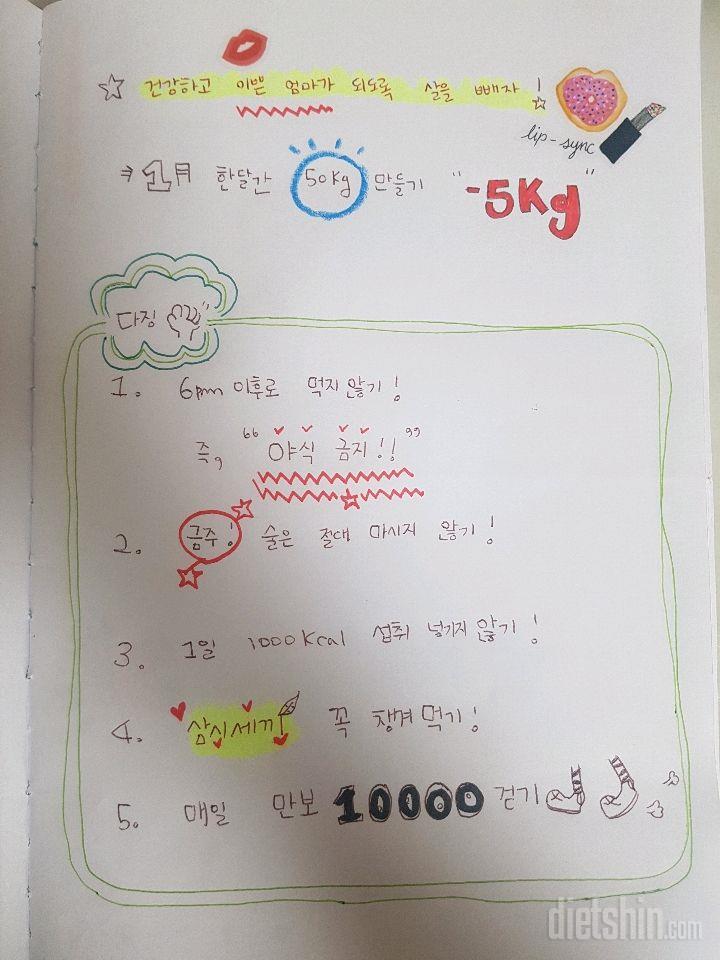 ☆ 건강하고 이쁜 엄마가 되도록 살을 빼자!
lip-sync
⇒ 1月 한달간 50kg 만들기 "-5Kg"
다짐
1. 6pm 이후로 먹지 않기!
즉, "야식 금지!!"
2. 금주! 술은 절대 마시지 않기!
3. 1일 1000Kcal 섭취 넣기지 않기!
4. 삼시세끼 꼭 챙겨 먹기!
5. 매일 만보 10000 걷기
dietshin.com